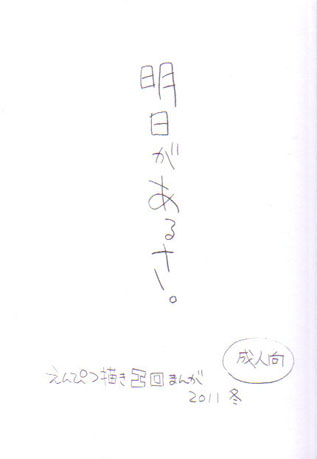 明日があるさ。
成人向
えんぴつ描き巫回まんが
2011 冬